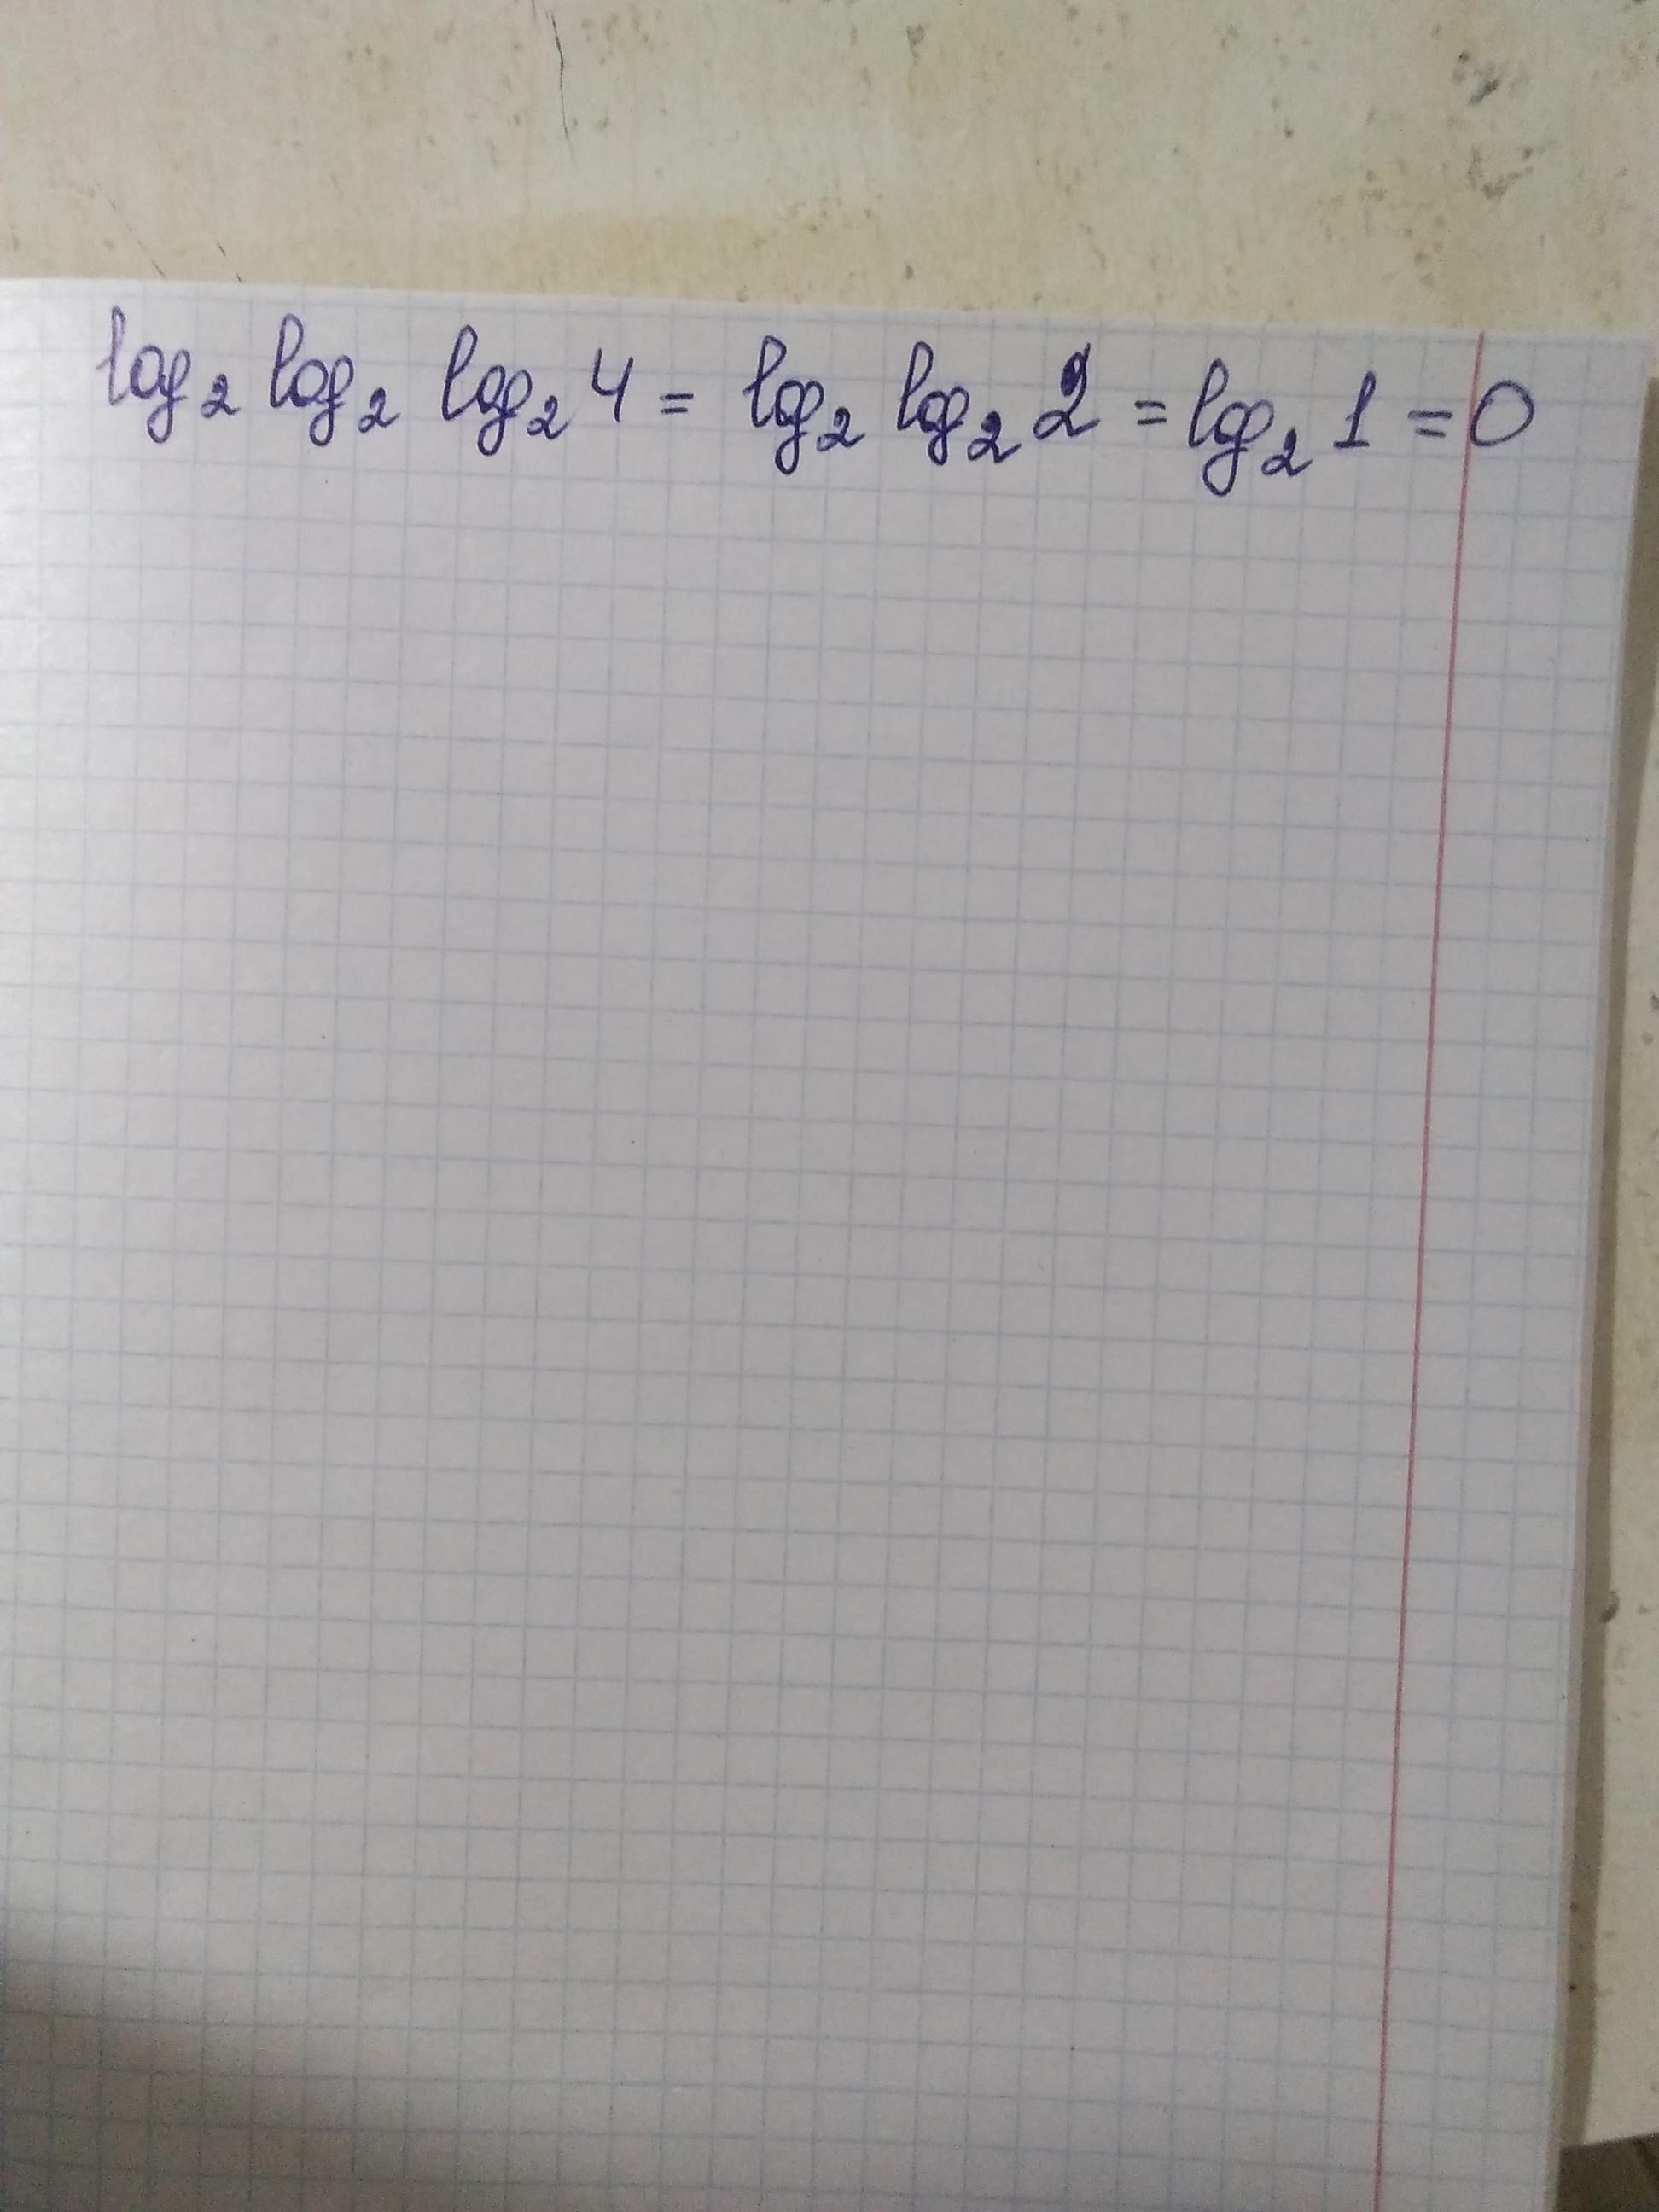 log₂ log₂ log₂ 4 = log₂ log₂ 2 = log₂ 1 = 0